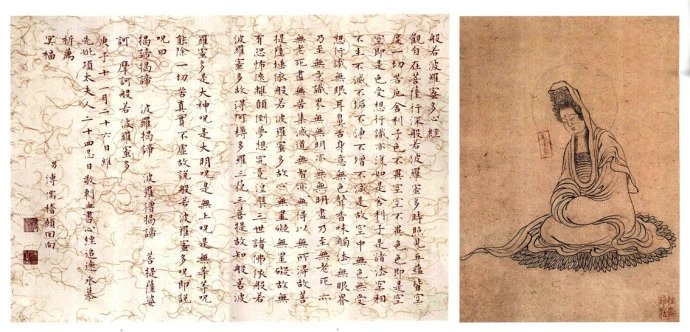 般若波羅蜜多心經
觀自在菩薩行深般若波羅蜜多時照見五蘊皆空
度一切苦厄舍利子色不異空空不異色色即是空
空即是色受想行識亦復如是舍利子是諸法空相
不生不滅不垢不淨不增不減是故空中無色無受
想行識無眼耳鼻舌身意無色聲香味觸法無眼界
乃至無意識界無無明亦無無明盡乃至無老死亦
無老死盡無苦集滅道無智亦無得以無所得故菩
提薩埵依般若波羅蜜多故心無罣礙無罣礙故無
有恐怖遠離顛倒夢想究竟涅槃三世諸佛依般若
波羅蜜多故得阿耨多羅三藐三菩提故知般若波
羅蜜多是大神咒是大明咒是無上咒是無等等咒
能除一切苦真實不虛故說般若波羅蜜多咒即說
咒曰
揭諦揭諦 波羅揭諦 波羅僧揭諦 菩提薩婆
訶 摩訶般若波羅蜜多
庚子十一月二十六日維
先妣項太夫人二十四忌日敬刺血書心經追遠永慕
祈薦
冥福
男溥儒稽顙回向